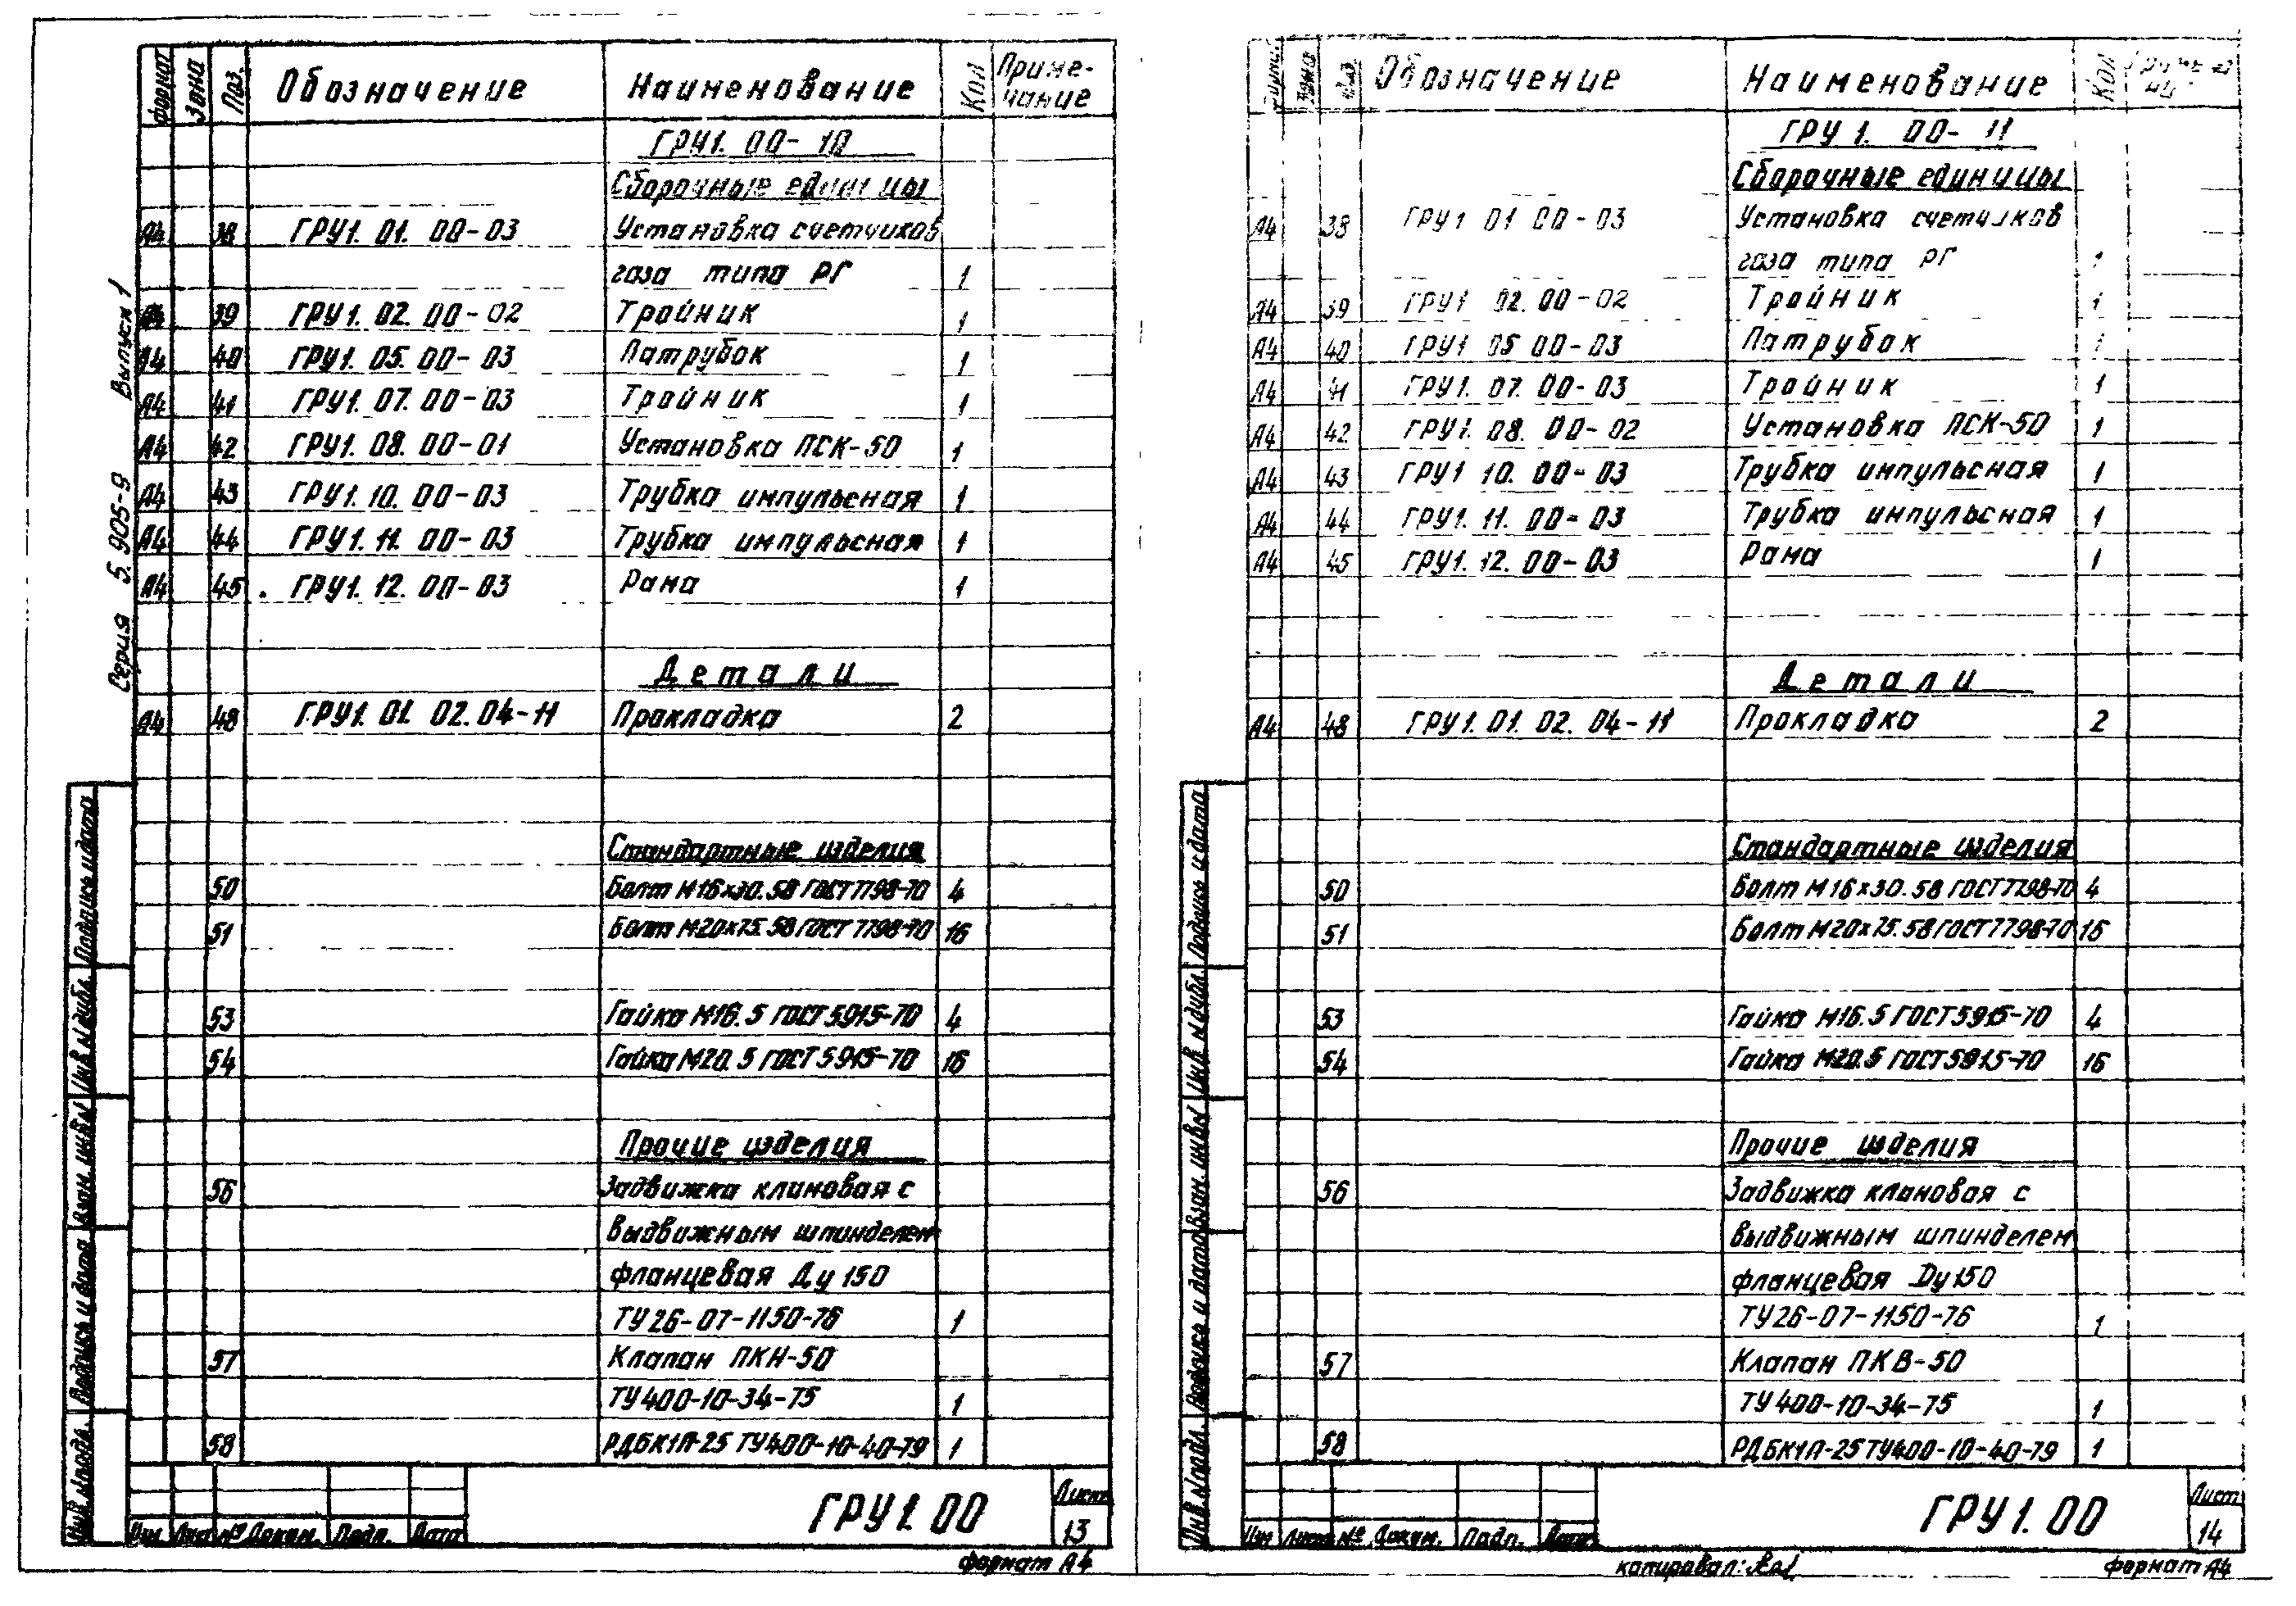 Серия 5.905-9 Выпуск 1
Формат Зона Поз. Обозначение Наименование Кол Приме-
чание
ГРУ1. 00-10
Сборочные единицы
А4 38 ГРУ1. 01. 00-03 Установка счетчиков
газа типа РГ 1
А4 39 ГРУ1. 02. 00-02 Тройник 1
А4 40 ГРУ1. 05. 00-03 Патрубок 1
А4 41 ГРУ1. 07. 00-03 Тройник 1
А4 42 ГРУ1. 08. 00-01 Установка ПСК-50 1
А4 43 ГРУ1. 10. 00-03 Трубка импульсная 1
А4 44 ГРУ1. 11. 00-03 Трубка импульсная 1
А4 45 ГРУ1. 12. 00-03 Рама 1
Детали
А4 48 ГРУ1. 01. 02. 04-11 Прокладка 2
Стандартные изделия
50 Болт М16×30.58 ГОСТ 7798-70 4
51 Болт М20×75.58 ГОСТ 7798-70 16
53 Гайка М16.5 ГОСТ 5915-70 4
54 Гайка М20.5 ГОСТ 5915-70 16
Прочие изделия
56 Задвижка клиновая с
выдвижным шпинделем
фланцевая Ду 150
ТУ 26-07-1150-76 1
57 Клапан ПКН-50
ТУ 400-10-34-75 1
58 РДБК1П-25 ТУ400-10-40-79 1
Инв. № подл. Подпись и дата Взам. инв. № Инв. № дубл. Подпись и дата
Изм Лист № Докум. Подп. Дата
ГРУ1. 00
Лист
13
формат А4
Формат Зона Поз. Обозначение Наименование Кол
ГРУ1. 00-11
Сборочные единицы
А4 38 ГРУ1 01 00-03 Установка счетчиков
газа типа РГ 1
А4 39 ГРУ1 02. 00-02 Тройник 1
А4 40 ГРУ1 05 00-03 Патрубок 1
А4 41 ГРУ1. 07. 00-03 Тройник 1
А4 42 ГРУ1. 08. 00-02 Установка ПСК-50 1
А4 43 ГРУ1 10. 00-03 Трубка импульсная 1
А4 44 ГРУ1. 11. 00-03 Трубка импульсная 1
А4 45 ГРУ1. 12. 00-03 Рама 1
Детали
А4 48 ГРУ1. 01. 02. 04-11 Прокладка 2
Стандартные изделия
50 Болт М16×30.58 ГОСТ 7798-70 4
51 Болт М20×75.58 ГОСТ 7798-70 16
53 Гайка М16.5 ГОСТ 5915-70 4
54 Гайка М20.5 ГОСТ 5915-70 16
Прочие изделия
56 Задвижка клиновая с
выдвижным шпинделем
фланцевая Dу 150
ТУ 26-07-1150-76 1
57 Клапан ПКВ-50
ТУ 400-10-34-75 1
58 РДБК1П-25 ТУ400-10-40-79 1
Инв. № подл. Подпись и дата Взам. инв. № Инв. № дубл. Подпись и дата
Изм Лист № Докум. Подп. Дата
ГРУ1. 00
Лист
14
копировал:
формат А4